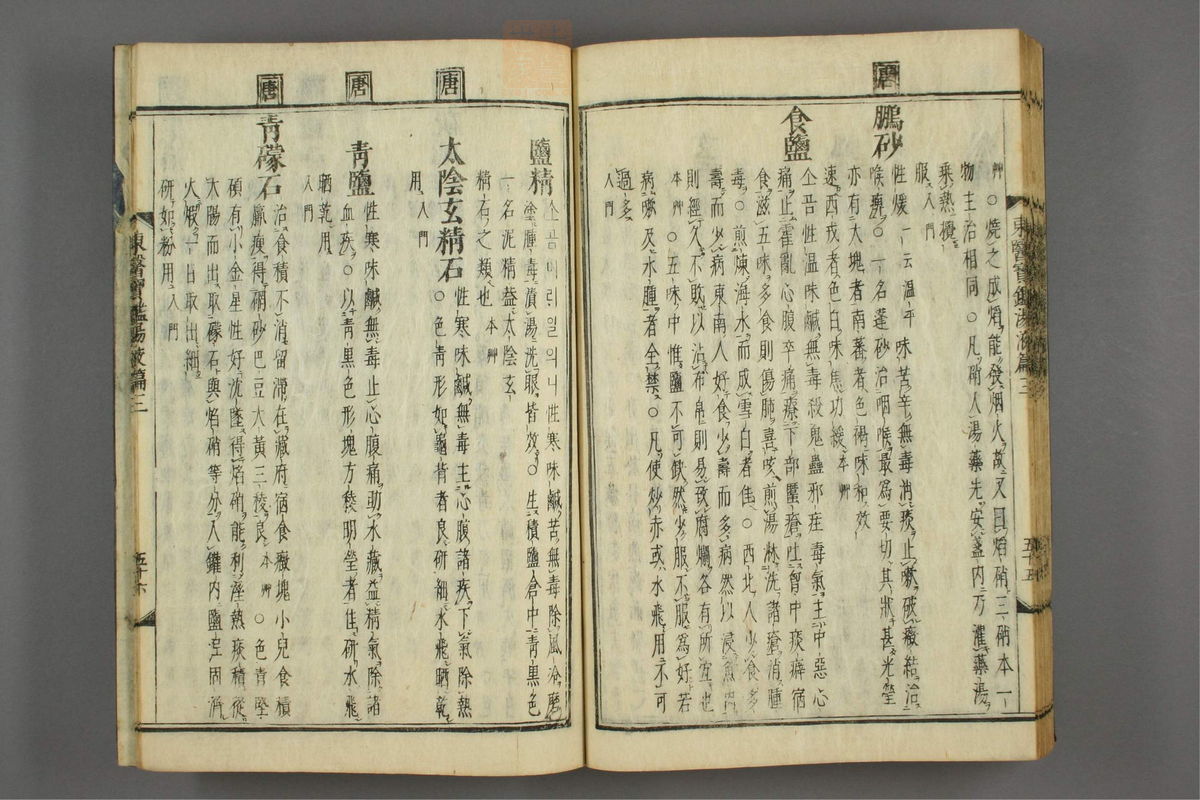 東醫寶鑑湯液篇三
五十五
艸○燒之成熖能發烟火故又曰熖硝三硝本一
物主治相同○凡硝入湯藥先安盞內乃灌藥湯
乘熱攪
服入門
唐
鵬砂
性煖一云溫平味苦辛無毒消痰止嗽破癥結治
喉痺○一名蓬砂治咽喉最爲要切其狀甚光瑩
亦有大塊者南蕃者色褐味和效
速西戎者色白味焦功緩本艸
食鹽
소곰性溫味鹹無毒殺鬼蠱邪疰毒氣主中惡心
痛止霍亂心腹卒痛療下部䘌瘡吐胷中痰癖宿
食滋五味多食則傷肺喜咳煎湯淋洗諸瘡消腫
毒○煎煉海水而成雪白者佳○西北人少食多
壽而少病東南人好食少壽而多病然以浸魚肉
則經久不敗以沾布帛則易致腐爛各有所宜也
本艸○五味中惟鹽不可缺然少服不服爲好若
病嗽及水腫者全禁○凡使炒赤或水飛用不可
過多
入門
鹽精
소곰어리일의니性寒味鹹苦無毒除風冷磨
塗腫毒漬湯洗眼皆效○生積鹽倉中靑黑色
一名泥精益太陰玄
精石之類也本艸
唐
太陰玄精石
性寒味鹹無毒主心腹諸疾下氣除熱
○色靑形如龜背者良硏細水飛晒乾
用入門
唐
靑鹽
性寒味鹹無毒止心腹痛助水藏益精氣除諸
血疾○以靑黑色形塊方稜明瑩者佳硏水飛
晒乾用
入門
唐
靑礞石
治食積不消留滯在藏府宿食癥塊小兒食積
羸瘦得硇砂巴豆大黃三稜良本艸○色靑堅
碩有小金星性好沈墜得焰硝能利濕熱痰積從
大腸而出取礞石與焰硝等分入鑵內鹽泥固濟
火煆一日取出細
硏如粉用入門
東醫寶鑑湯液篇三
五十六